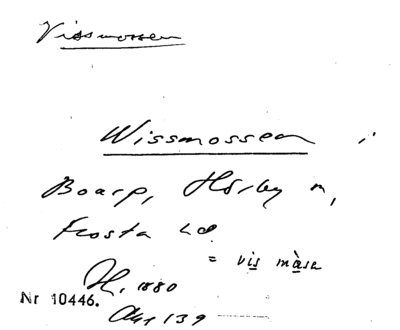 Vissmossen
Wissmossen i
Boarp, Hörby sn,
Frosta hd.
= vis màsa
H. 1880
Nr 10446.
139